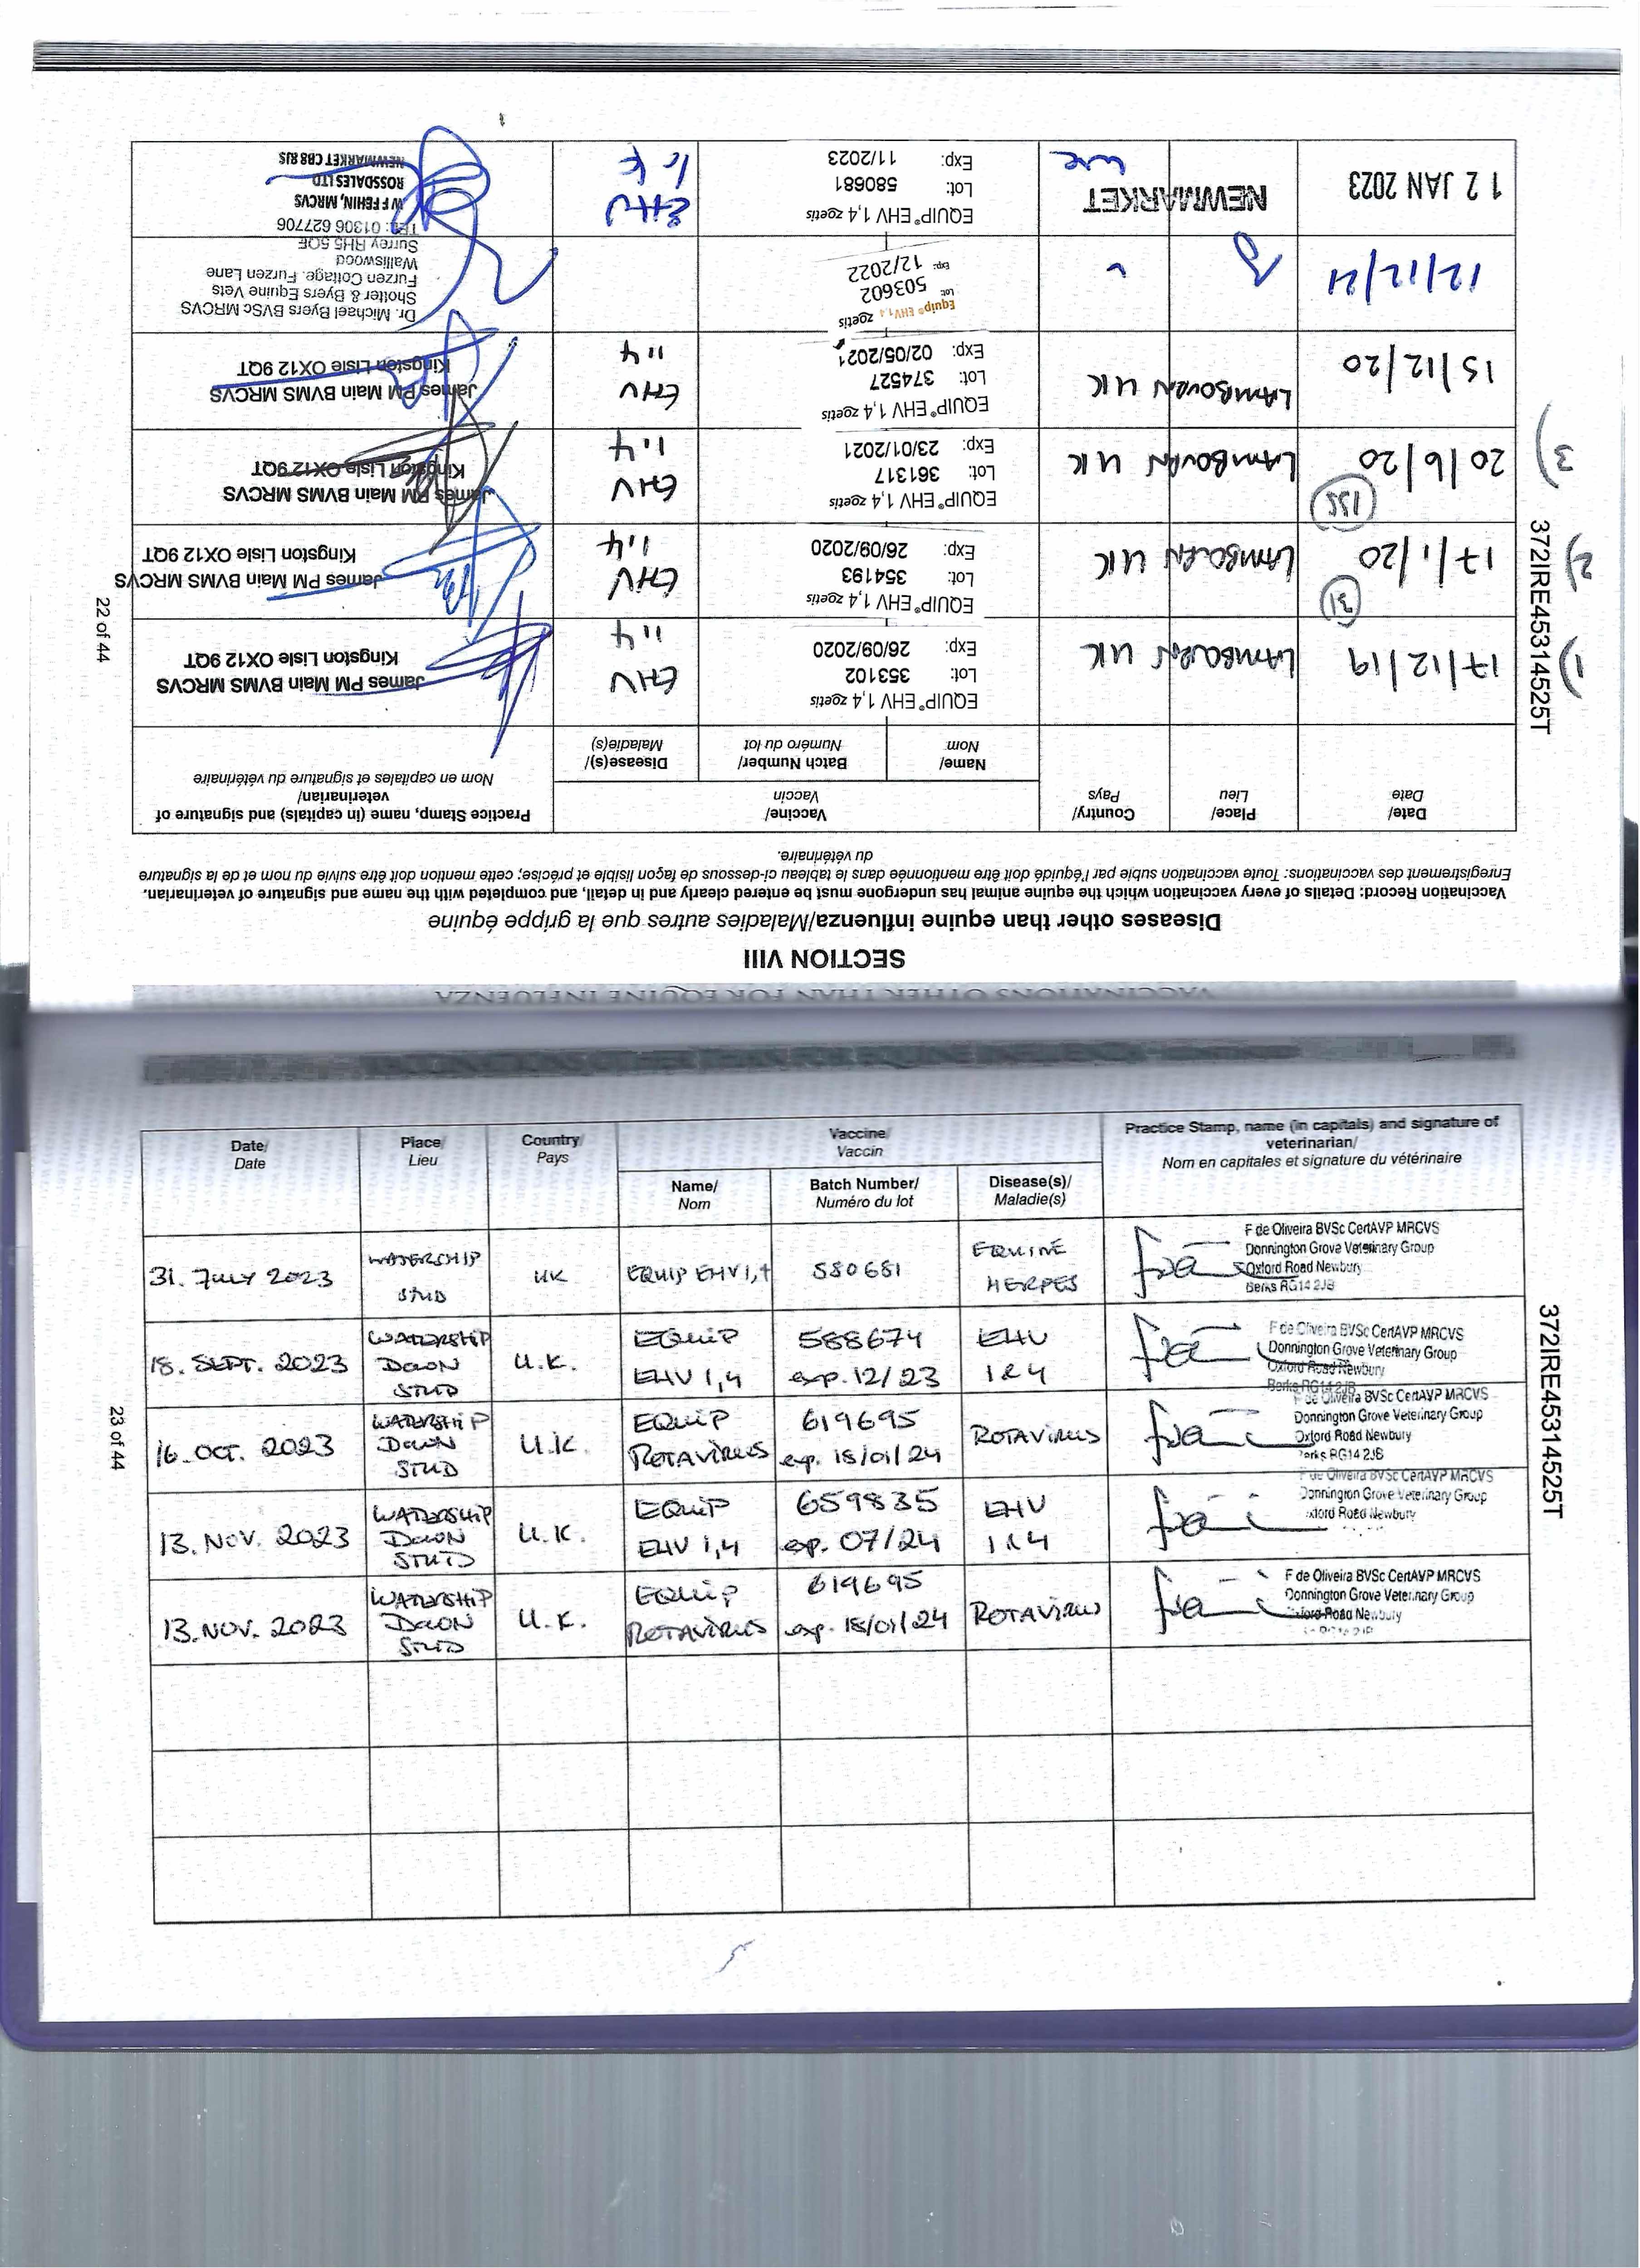 SECTION VIII
Diseases other than equine influenza/Maladies autres que la grippe équine
Vaccination Record: Details of every vaccination which the equine animal has undergone must be entered clearly and in detail, and completed with the name and signature of veterinarian.
Enregistrement des vaccinations: Toute vaccination subie par l'équidé doit être mentionnée dans le tableau ci-dessous de façon lisible et précise; cette mention doit être suivie du nom et de la signature
du vétérinaire.
Date/ Date
Place/ Lieu
Country/ Pays
Vaccine/ Vaccin
Name/ Nom
Batch Number/ Numéro du lot
Disease(s)/ Maladie(s)
Practice Stamp, name (in capitals) and signature of
veterinarian/
Nom en capitales et signature du vétérinaire
1)
17/12/19
LAMBOURN UK
EQUIP® EHV 1,4 zoetis
Lot: 353102
Exp: 26/09/2020
EHV
1,4
James PM Main BVMS MRCVS
Kingston Lisle OX12 9QT
31
2)
17/1/20
LAMBOURN UK
EQUIP® EHV 1,4 zoetis
Lot: 354193
Exp: 26/09/2020
EHV
1,4
James PM Main BVMS MRCVS
Kingston Lisle OX12 9QT
155
3)
20/6/20
LAMBOURN UK
EQUIP® EHV 1,4 zoetis
Lot: 361317
Exp: 23/01/2021
EHV
1,4
James PM Main BVMS MRCVS
Kingston Lisle OX12 9QT
15/12/20
LAMBOURN UK
EQUIP® EHV 1,4 zoetis
Lot: 374527
Exp: 02/05/2021
EHV
1,4
James PM Main BVMS MRCVS
Kingston Lisle OX12 9QT
12/12/21
Equip® EHV 1,4 zoetis
Lot: 503602
Exp: 12/2022
Dr. Michael Byers BVSc MRCVS
Shotter & Byers Equine Vets
Furzen Cottage. Furzen Lane
Walliswood
Surrey RH5 5QE
TEL: 01306 627706
12 JAN 2023
NEWMARKET
EQUIP® EHV 1,4 zoetis
Lot: 580681
Exp: 11/2023
EHV
W F FEHIN, MRCVS
ROSSDALES LTD
NEWMARKET CB8 8JS
372IRE45314525T
22 of 44
Date/ Date
Place/ Lieu
Country/ Pays
Vaccine/ Vaccin
Name/ Nom
Batch Number/ Numéro du lot
Disease(s)/ Maladie(s)
Practice Stamp, name (in capitals) and signature of
veterinarian/
Nom en capitales et signature du vétérinaire
31. JULY 2023
WATERSHIP
STUD
UK
EQUIP EHV 1,4
580681
EQUINE
HERPES
F de Oliveira BVSc CertAVP MRCVS
Donnington Grove Veterinary Group
Oxford Road Newbury
Berks RG14 2JB
18. SEPT. 2023
WATERSHIP
DOWN
STUD
U.K.
EQUIP
EHV 1,4
588674
exp. 12/23
EHV
1&4
F de Oliveira BVSc CertAVP MRCVS
Donnington Grove Veterinary Group
Oxford Road Newbury
Berks RG14 2JB
16. OCT. 2023
WATERSHIP
DOWN
STUD
U.K.
EQUIP
ROTAVIRUS
619695
exp. 18/01/24
ROTAVIRUS
F de Oliveira BVSc CertAVP MRCVS
Donnington Grove Veterinary Group
Oxford Road Newbury
Berks RG14 2JB
13. NOV. 2023
WATERSHIP
DOWN
STUD
U.K.
EQUIP
EHV 1,4
659835
exp. 07/24
EHV
1&4
F de Oliveira BVSc CertAVP MRCVS
Donnington Grove Veterinary Group
Oxford Road Newbury
13. NOV. 2023
WATERSHIP
DOWN
STUD
U.K.
EQUIP
ROTAVIRUS
619695
exp. 18/01/24
ROTAVIRUS
F de Oliveira BVSc CertAVP MRCVS
Donnington Grove Veterinary Group
Oxford Road Newbury
372IRE45314525T
23 of 44